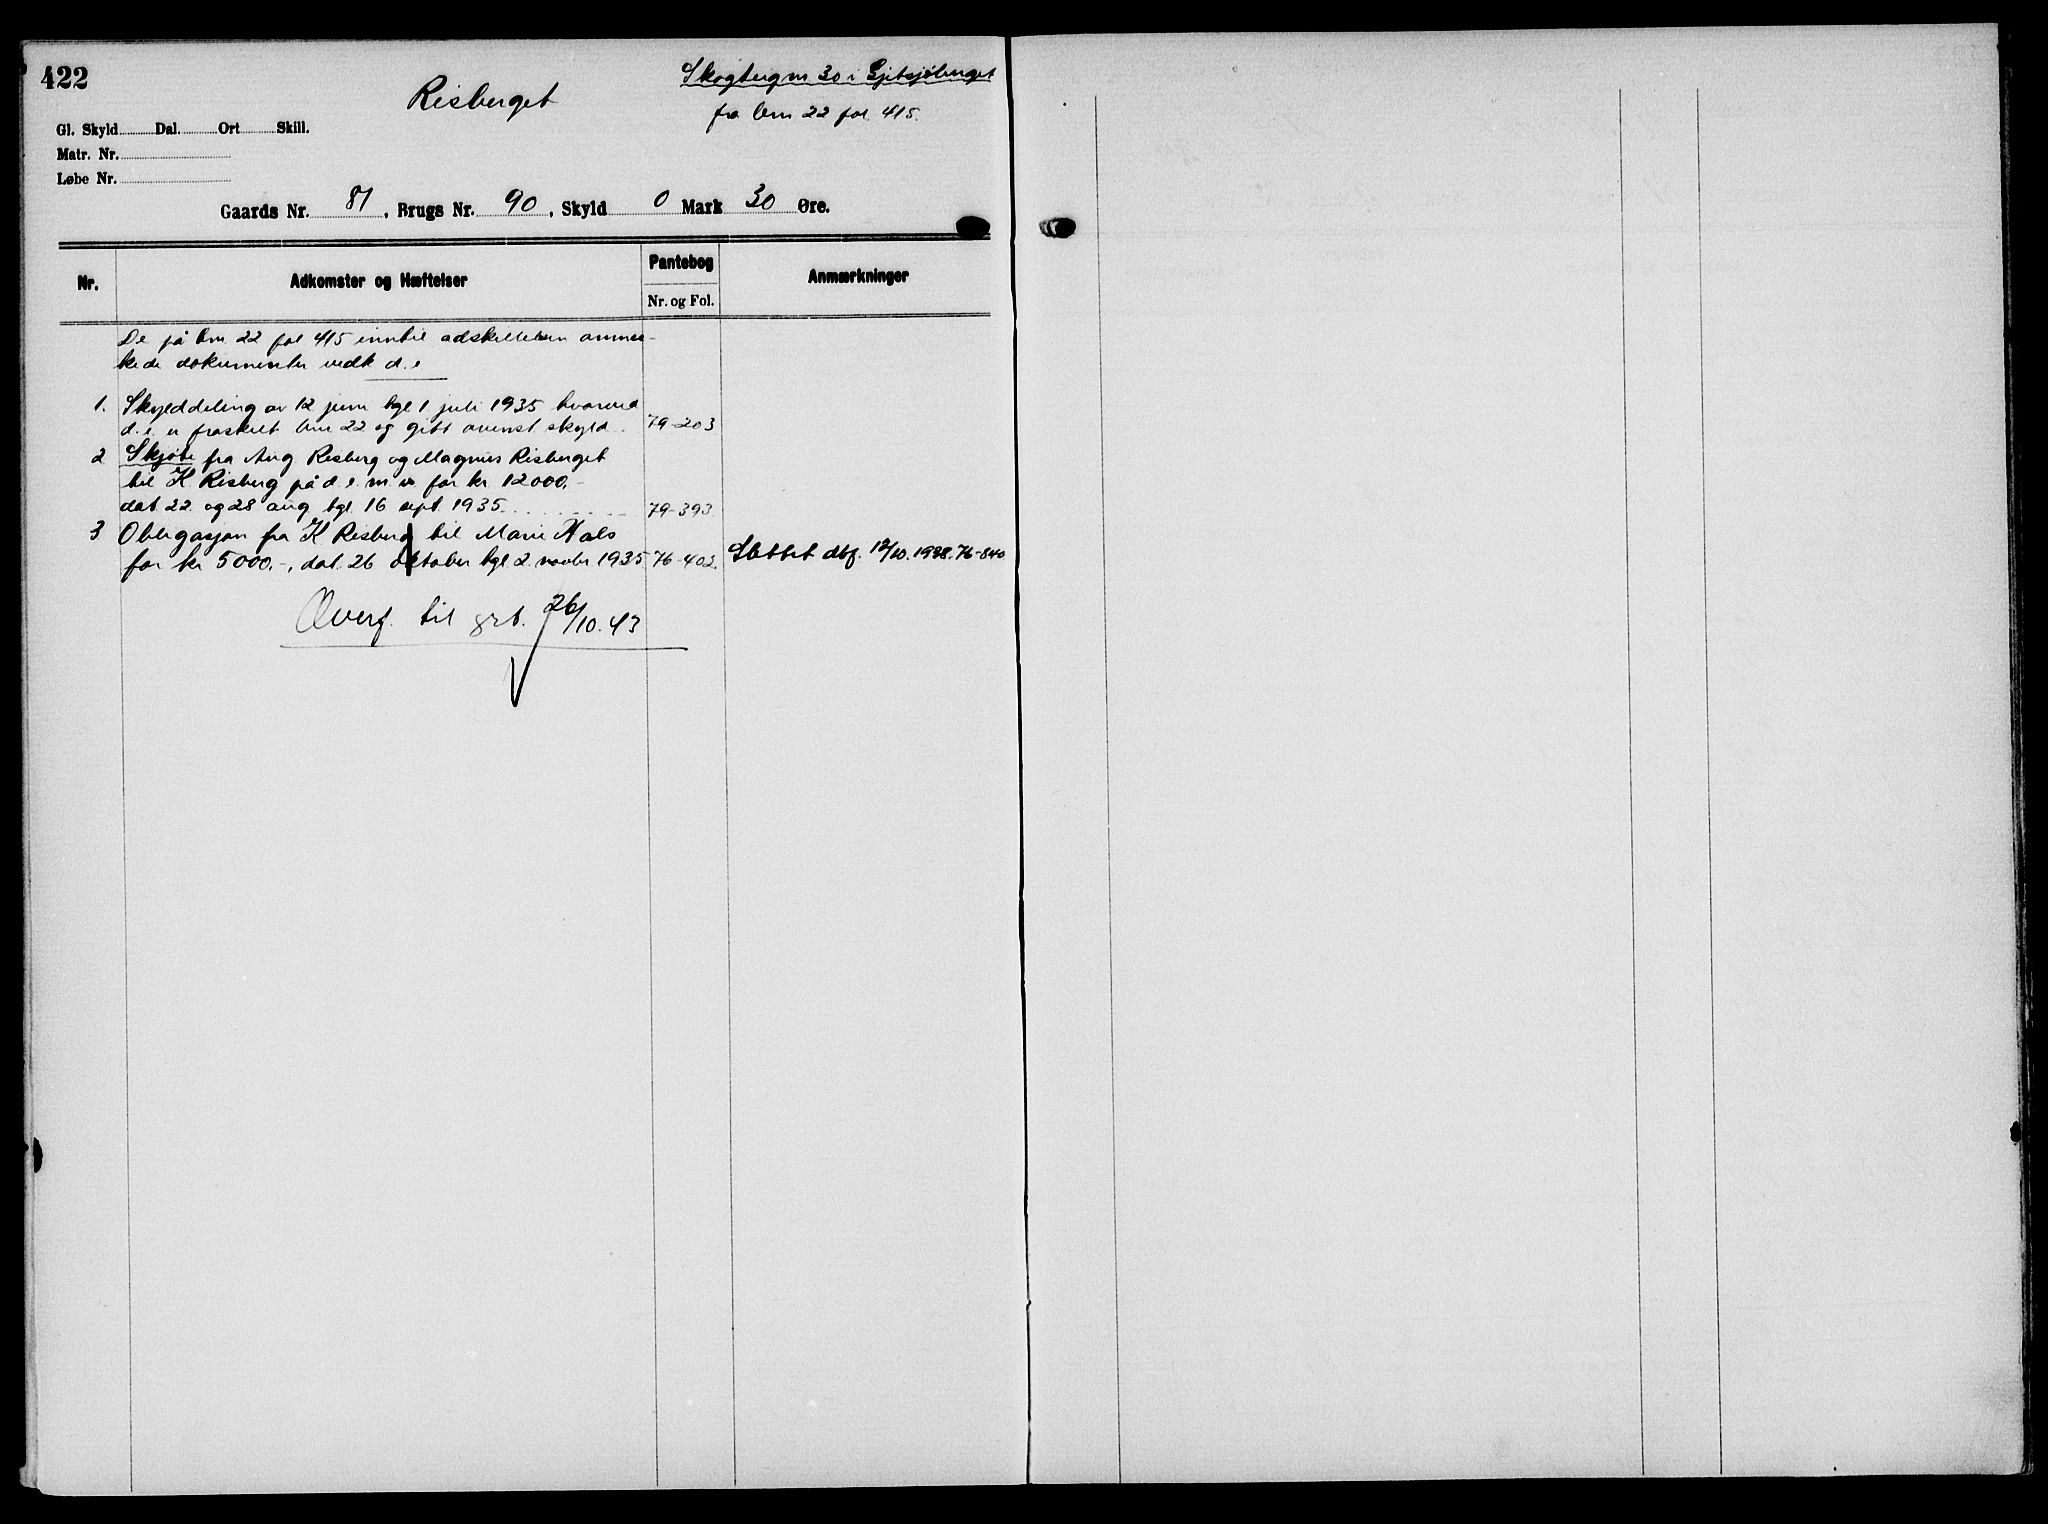 422
Risberget
Skogteig nr. 30 i Gjetsjøberget
fra bnr 22 fol 415.
Gl. Skyld Dal. Ort Skill.
Matr. Nr.
Løbe Nr.
Gaards Nr. 81, Brugs Nr. 90, Skyld 0 Mark 30 Øre.
Nr. Adkomster og Hæftelser Pantebog Nr. og Fol. Anmærkninger
De på bnr. 22 fol 415 inntil adskillelsen anmer-
kede dokumenter vedk d.e
1. Skylddeling av 12 juni tgl 1 juli 1935 hvorved
d.e. er fraskilt bnr 22 og gitt ovenst skyld. 79-203
2 Skjøte fra Aug Risberg og Magnus Risberget
til K Risberg på d.e. m.v. for kr 12000.-
dat 22. og 28 aug tgl 16 sept 1935 79-393
3 Obligasjon fra K Risberg til Marie Hals
for kr 5000.-, dat. 26 oktober tgl 2. novbr 1935 76-402. Slettet dbf. 12/10.1938. 76-840
Overf. til grb. 26/10.43